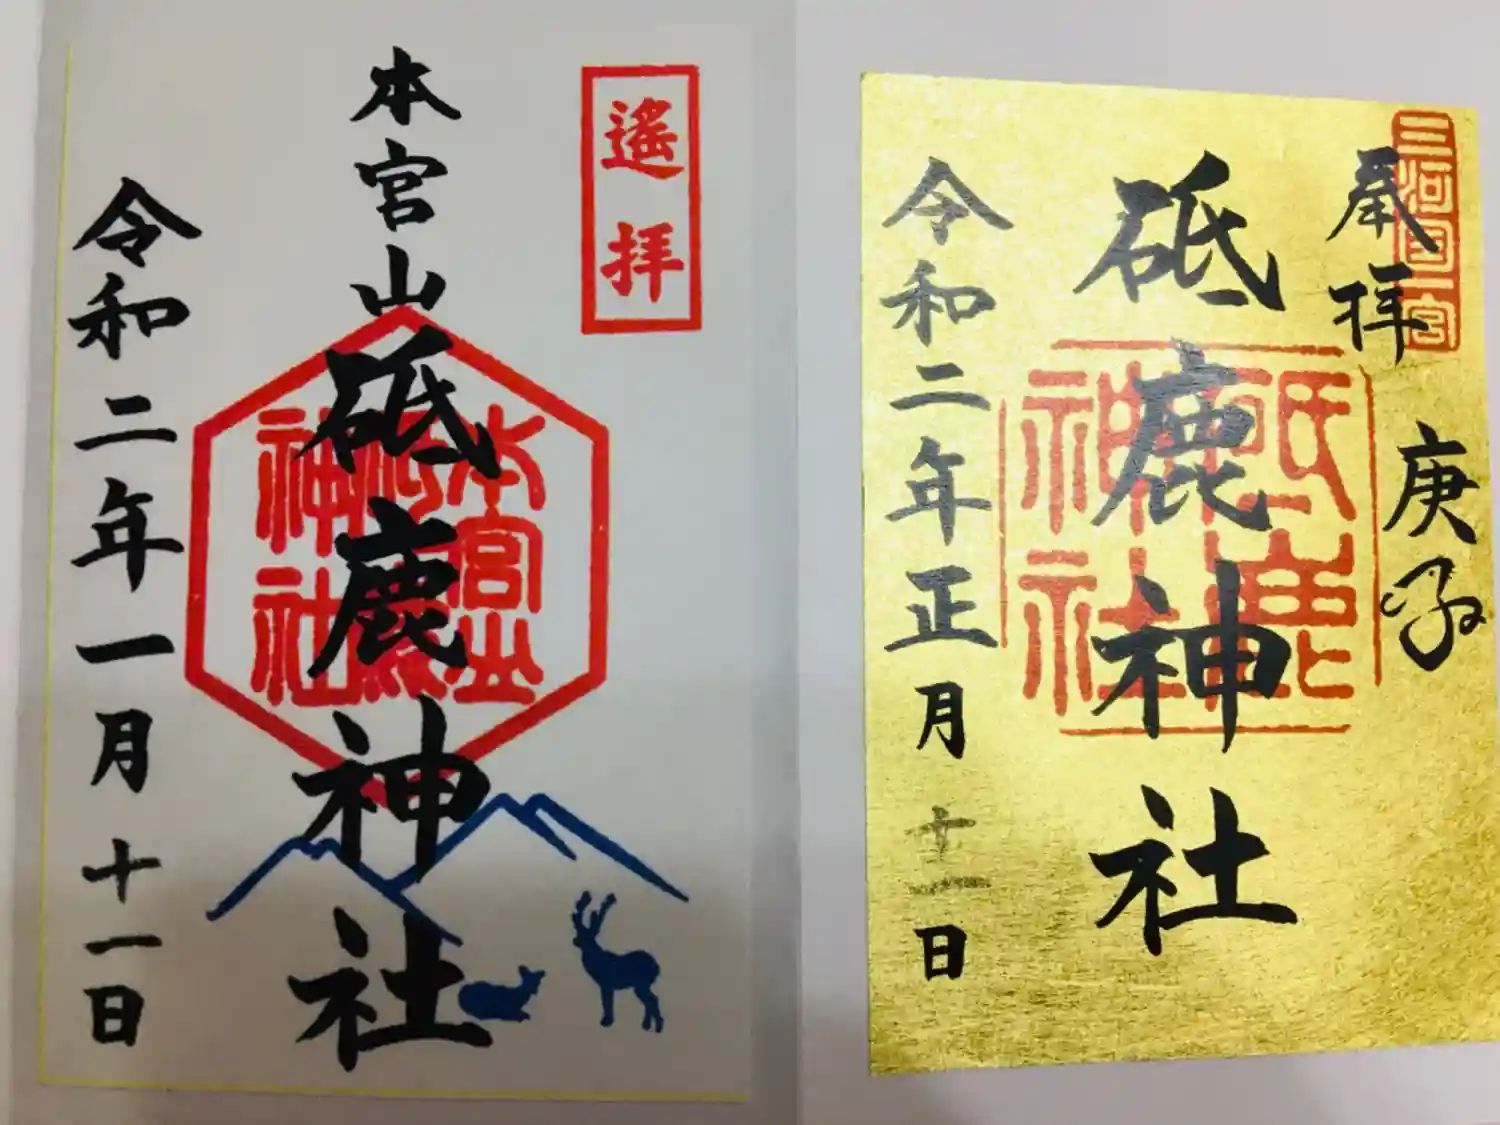 遙拝
本宮山砥鹿神社
本宮山
砥鹿
神社
令和二年一月十一日
三河国一宮
奉拝
庚子
砥鹿神社
砥鹿
神社
令和二年正月十一日